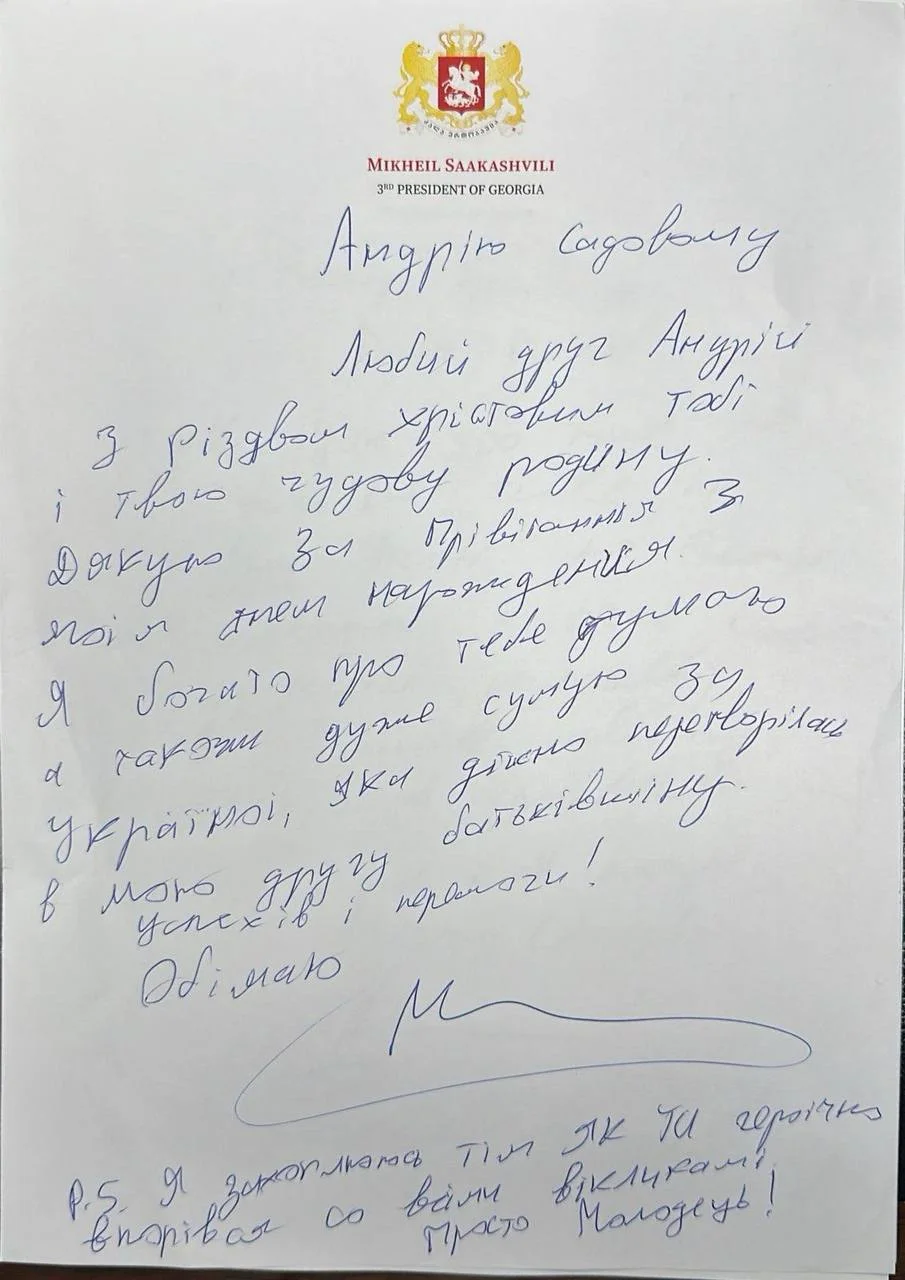 ძალა ერთობაშია
MIKHEIL SAAKASHVILI
3RD PRESIDENT OF GEORGIA
Андрію Садовому
Любий друг Андрій
З різдвом хрістовим тобі
і твою чудову родину.
Дякую за прівітання з
моїм днем народження.
Я богато про тебе думаю
а також дуже сумую за
Україної, яка дійсно перетворілась
в мою другу батьківшіну.
Успехів і перемоги!
Обімаю
P.S. Я захоплююсь тім як ти героїчно
впорівая со всіми віклікамі
Просто Молодець!